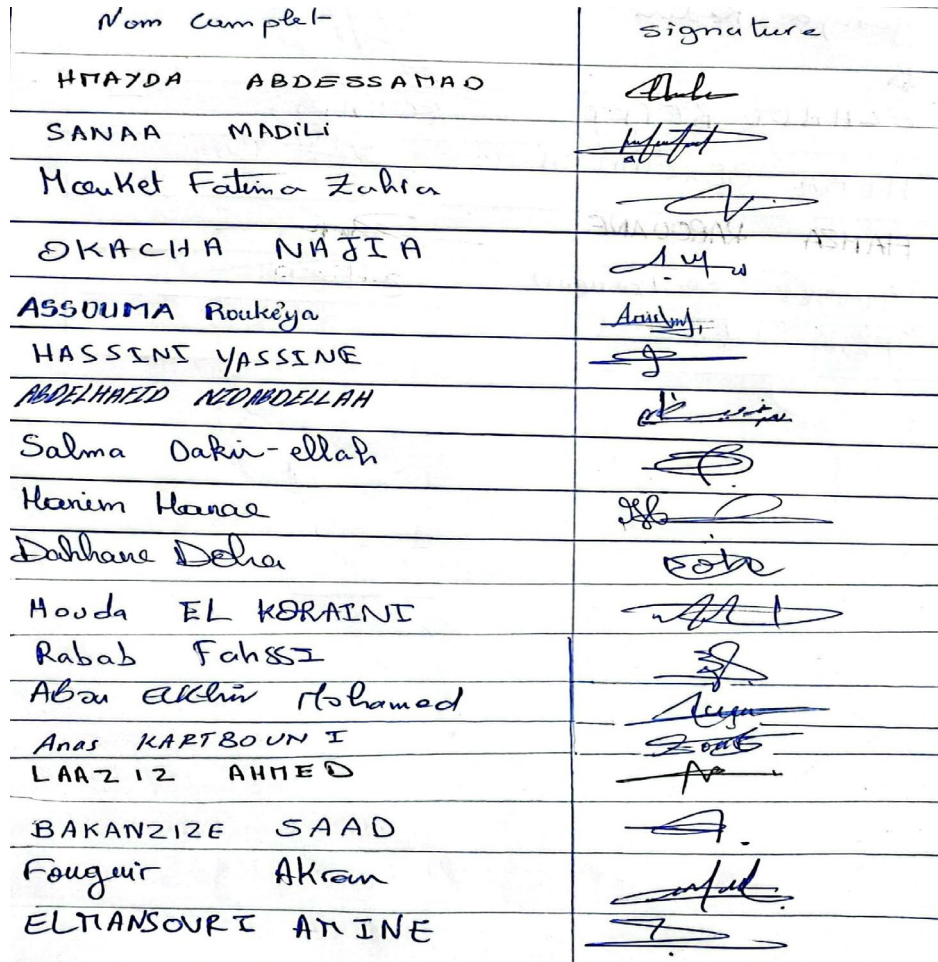 Nom Complet signature
HMAYDA ABDESSAMAD
SANAA MADILI
Fatima Zahra
OKACHA NAJIA
ASSOUMA Roukeya
HASSINI YASSINE
ABDELHAFID NIDABDELLAH
Salma Dakir-ellah
Hariem Hanae
Dahhane Doha
Houda EL KORAINI
Rabab FahssI
Abou Elkhir Mohamed
Anas KARTBOUNI
LAAZIZ AHMED
BAKANZIZE SAAD
Fouguir AKram
ELMANSOURI AMINE